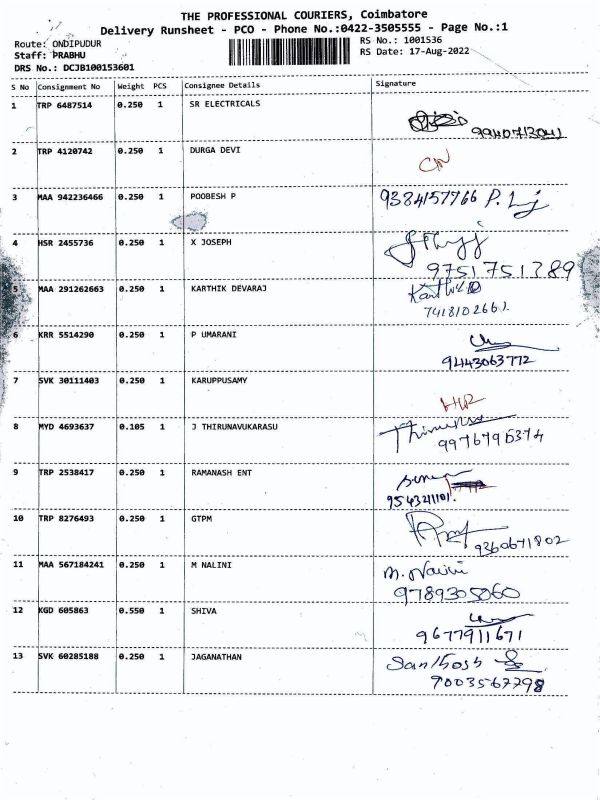 THE PROFESSIONAL COURIERS, Coimbatore
Delivery Runsheet - PCO - Phone No.:0422-3505555 - Page No.:1
Route: ONDIPUDUR
RS No.: 1001536
Staff: PRABHU
RS Date: 17-Aug-2022
DRS No.: DCJB100153601
S No Consignment No Weight PCS Consignee Details Signature
1 TRP 6487514 0.250 1 SR ELECTRICALS
9940713041
2 TRP 4120742 0.250 1 DURGA DEVI
CN
3 MAA 942236466 0.250 1 POOBESH P 9384157766 P.
4 HSR 2455736 0.250 1 X JOSEPH
9751751389
5 MAA 291262663 0.250 1 KARTHIK DEVARAJ Karthik
7418102662
6 KRR 5514290 0.250 1 P UMARANI
9443063772
7 SVK 30111403 0.250 1 KARUPPUSAMY
8 MYD 4693637 0.105 1 J THIRUNAVUKARASU
9 TRP 2538417 0.250 1 RAMANASH ENT
9543211101.
10 TRP 8276493 0.250 1 GTPM
9360671802
11 MAA 567184241 0.250 1 M NALINI M. Nalini
9789305060
12 KGD 605863 0.550 1 SHIVA
9677911671
13 SVK 60285188 0.250 1 JAGANATHAN Santhosh
9003567798